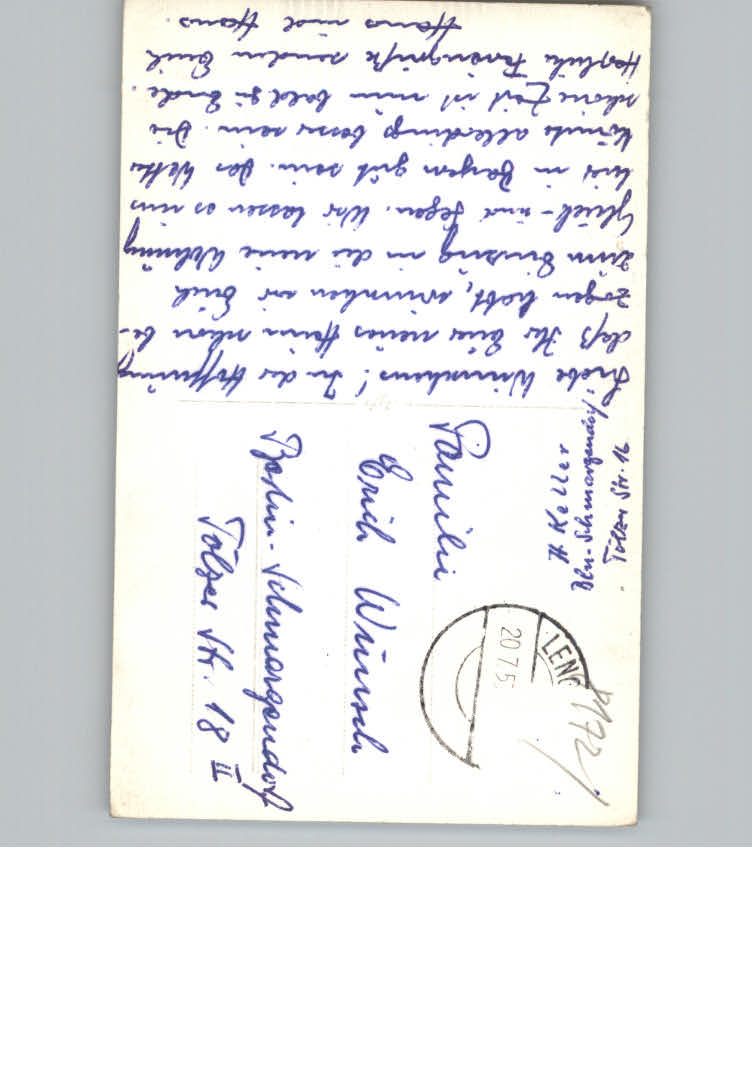 Liebe Wünschens! In der Hoffnung
daß Ihr Euer neues Heim schon be-
zogen habt, wünschen wir Euch
zum Einzug in die neue Wohnung
Glück- und Segen. Wir lassen es uns
hier in Bayern gut sein. Das Wetter
könnte allerdings besser sein. Die
schöne Zeit ist nun bald zu Ende.
Herzliche Feriengrüße senden Euch
Hans und Hans
H Keller
Bln-Schmargendorf
Tölzer Str. 16
Familie
Erich Wünsch
Berlin-Schmargendorf
Tölzer Str. 18 II
LENG
20.7.5